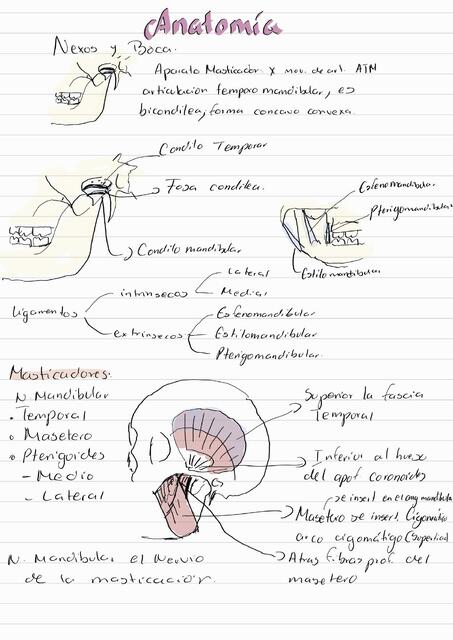 Anatomía
Nexos y Boca.
Aparato Masticador x mov. de art. ATM
articulación temporo mandibular, es
bicondilea, forma concavo convexa.
Condilo Temporar
Fosa condilea.
Condilo mandibular
Esfenomandibular
Pterigomandibular
Estilomandibular
Ligamentos
intrinsecos
Lateral
Medial
extrinsecos
Esfenomandibular
Estilomandibular
Pterigomandibular.
Masticadores.
N. Mandibular
• Temporal
• Masetero
• Pterigoides
- Medio
- Lateral
Superior la fascia
Temporal
Inferior al hueso
del apof coronoides
se insert en el ang mandibula
Masetero se insert. Cigomático
arco cigomático (superficial
Atras fibras prof. del
masetero
N. Mandibular el Nervio
de la masticación.